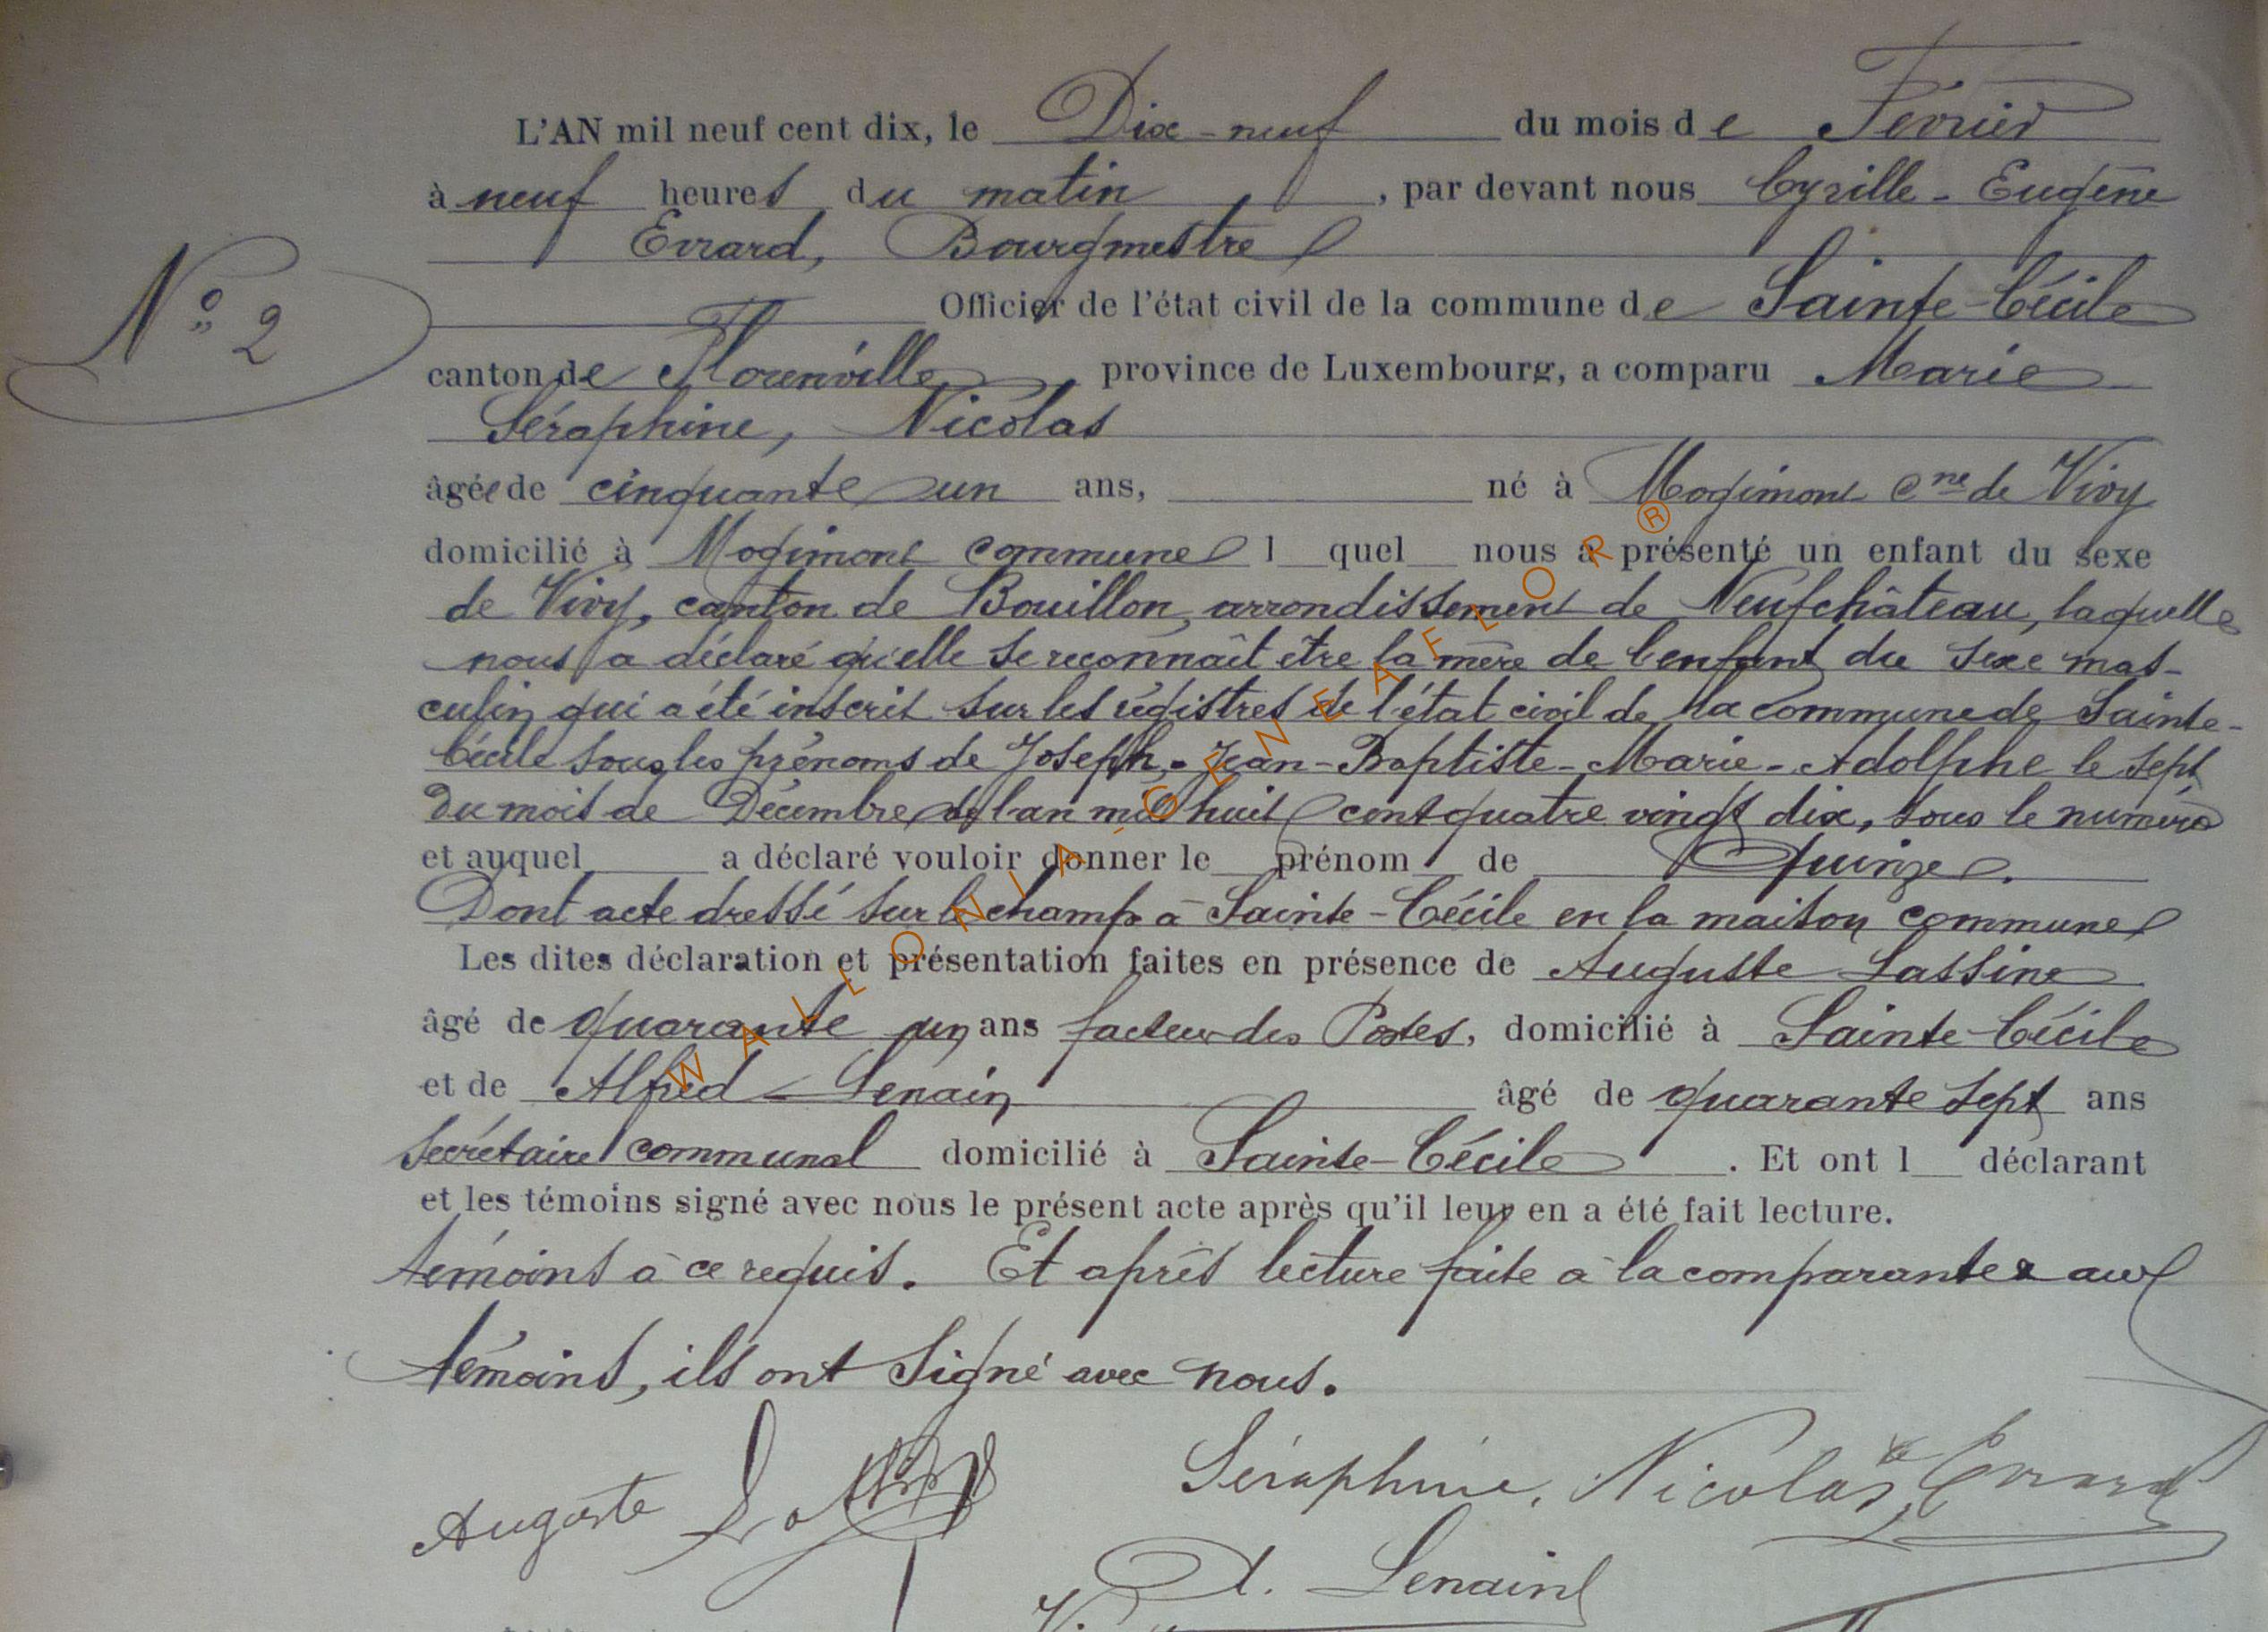 L'AN mil neuf cent dix, le Dix-neuf du mois de Février
à neuf heures du matin, par devant nous Cyrille-Eugène
Evrard, Bourgmestre
N° 2
Officier de l'état civil de la commune de Sainte-Cécile
canton de Florenville, province de Luxembourg, a comparu Marie
Séraphine, Nicolas
âgée de cinquante un ans, né à Mogimont cne de Vivy
domicilié à Mogimont commune l quel nous a présenté un enfant du sexe
de Vivy, canton de Bouillon, arrondissement de Neufchâteau, laquelle
nous a déclaré qu'elle se reconnaît être la mère de l'enfant du sexe mas-
culin qui a été inscrit sur les registres de l'état civil de la commune de Sainte-
Cécile sous les prénoms de Joseph-Jean-Baptiste-Marie-Adolphe le sept
du mois de Décembre de l'an mil huit cent quatre vingt dix, sous le numéro
et auquel a déclaré vouloir donner le prénom de Quinze.
Dont acte dressé sur le champ à Sainte-Cécile en la maison commune
Les dites déclaration et présentation faites en présence de Auguste Lassine
âgé de quarante un ans facteur des Postes, domicilié à Sainte-Cécile
et de Alfred Lenain âgé de quarante sept ans
Secrétaire communal domicilié à Sainte-Cécile. Et ont l déclarant
et les témoins signé avec nous le présent acte après qu'il leur en a été fait lecture.
témoins à ce requis. Et après lecture faite à la comparante & aux
témoins, ils ont signé avec nous.
Auguste Lassine Séraphine, Nicolas Evrard
A. Lenain
WALLONIA-GENEAFLOR®